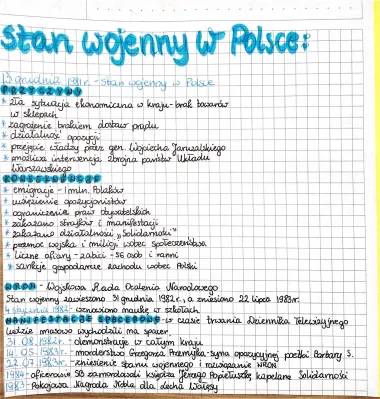 Stan wojenny w Polsce:
13 grudnia 1981r. - Stan wojenny w Polsce
PRZYCZYNY
* zła sytuacja ekonomiczna w kraju - brak towarów
w sklepach
* zagrożenie brakiem dostaw prądu
* działalność opozycji
* przejęcie władzy przez gen. Wojciecha Jaruzelskiego
* możliwa interwencja zbrojna państw Układu
Warszawskiego
KONSEKWENCJE
* emigracje - 1 mln. Polaków
* uwięzienie opozycjonistów
* ograniczenie praw obywatelskich
* zakazano strajków i manifestacji
* zakazano działalności "Solidarności"
* przemoc wojska i milicji wobec społeczeństwa
* liczne ofiary - zabici - 56 osób i ranni
* sankcje gospodarcze zachodu wobec Polski
WRON - Wojskowa Rada Ocalenia Narodowego
Stan wojenny zawieszono 31 grudnia 1982r., a zniesiono 22 lipca 1983r.
4 stycznia 1982 - wznowiono naukę w szkołach
MANIFESTACJE SPACEROWE - w czasie trwania Dziennika Telewizyjnego
ludzie masowo wychodzili na spacer.
31.08.1982r. - demonstracje w całym kraju
14.05.1983r. - morderstwo Grzegorza Przemyka - syna opozycyjnej poetki Barbary S.
22.07.1983r. - zniesienie stanu wojennego i rozwiązanie WRON
1984 - oficerowie SB zamordowali księdza Jerzego Popiełuszkę, kapelana Solidarności
1983 - Pokojowa Nagroda Nobla dla Lecha Wałęsy